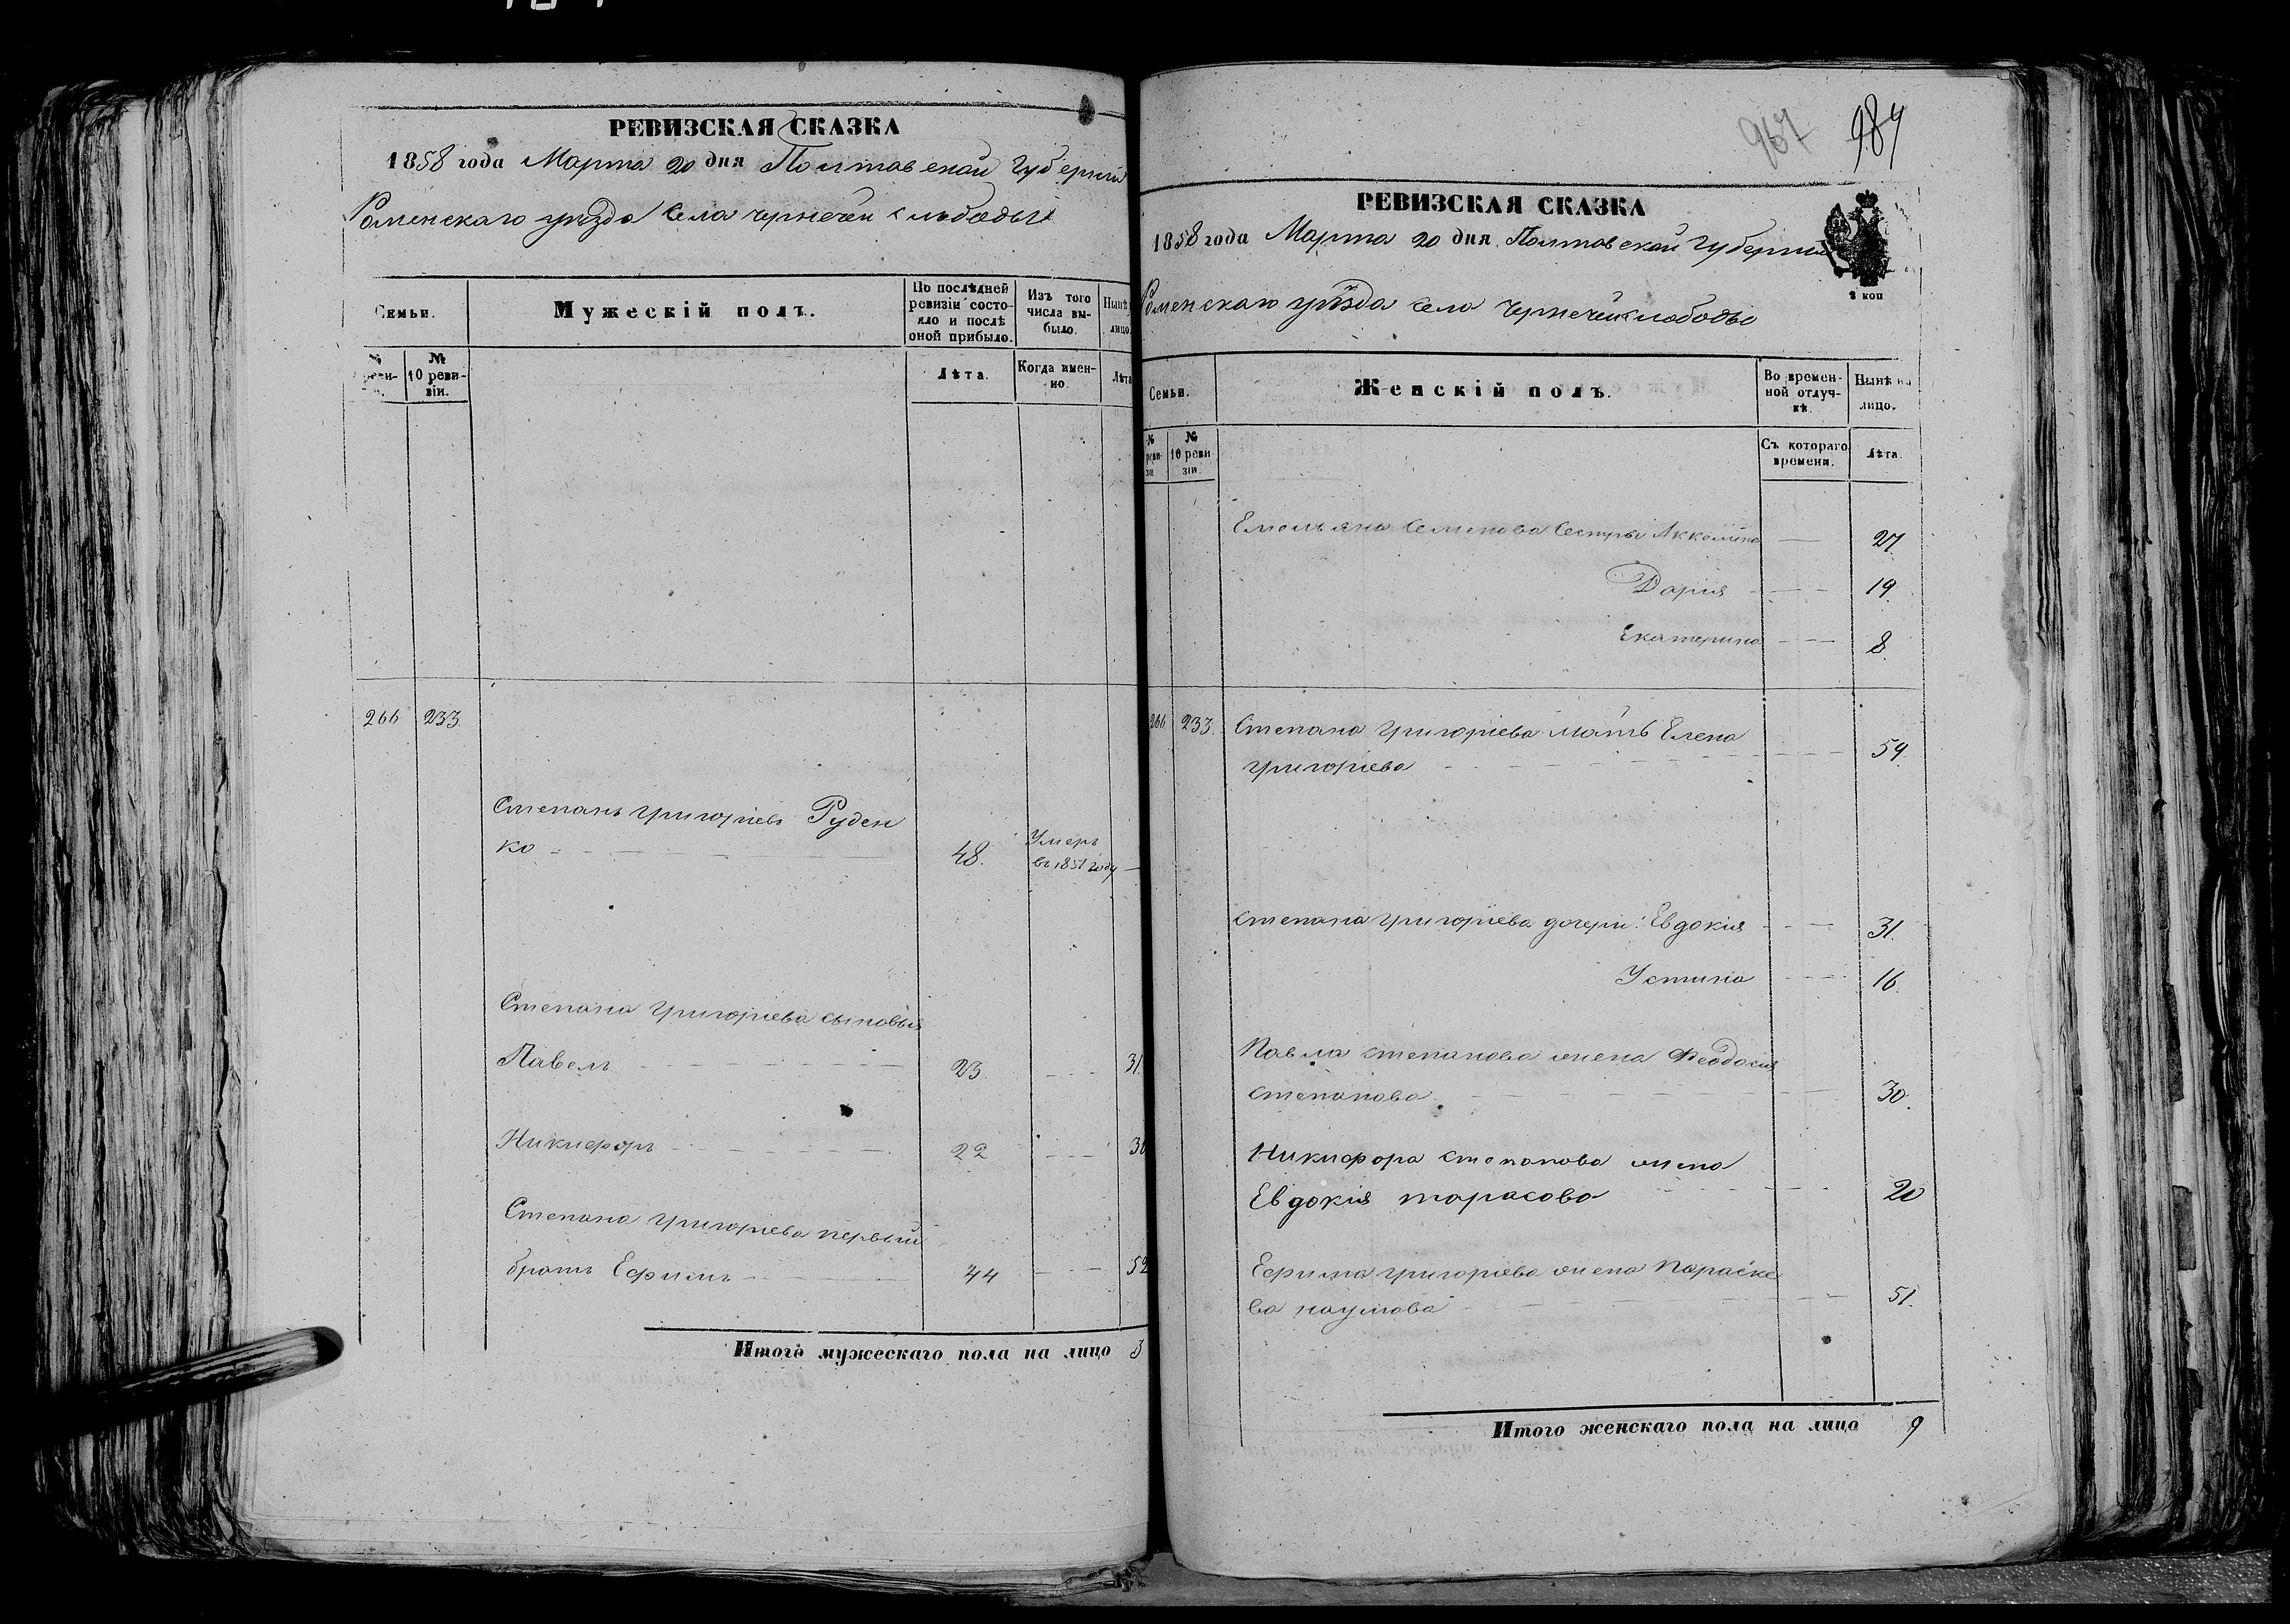 РЕВИЗСКАЯ СКАЗКА
1858 года Марта 20 дня Полтавской Губернии
Роменскаго уѣзда Села Чернечей слободы
Семьи.
Мужескій полъ.
По послѣдней ревизіи состояло и послѣ оной прибыло.
Изъ того числа выбыло.
Нынѣ
лицо
№
реви-
№
10 реви-
зіи.
Лѣта.
Когда имен-
но.
Лѣта
266 233
Степанъ Григорьевъ Руден
ко 48. Умеръ
въ 1851 году
Степана Григорьева сыновья
Павелъ 23. 31.
Никифоръ 22 30
Степана Григорьева первый
братъ Ефимъ 44 52
Итого мужескаго пола на лицо 3
967 984
РЕВИЗСКАЯ СКАЗКА
1858 года Марта 20 дня Полтавской Губернии
Роменскаго уѣзда села Чернечей слободы
1 коп
Семьи.
Женскій полъ.
Во времен-
ной отлуч-
кѣ.
Нынѣ на
лицо.
№
реви
зіи
№
10 реви
зіи.
Съ котораго
времени.
Лѣта.
Емельяна Семенова Сестры Аккелина 27.
Дарія 19.
Екатерина 8.
266 233. Степана Григоріева мать Елена
Григоріева 59.
Степана Григоріева дочери: Евдокія 31.
Устина 16.
Павла Степанова жена Феодосія
Степанова 30.
Никифора Степанова жена
Евдокія Тарасова 20
Ефима Григоріева жена Параске
ва Наумова 51.
Итого женскаго пола на лицо 9